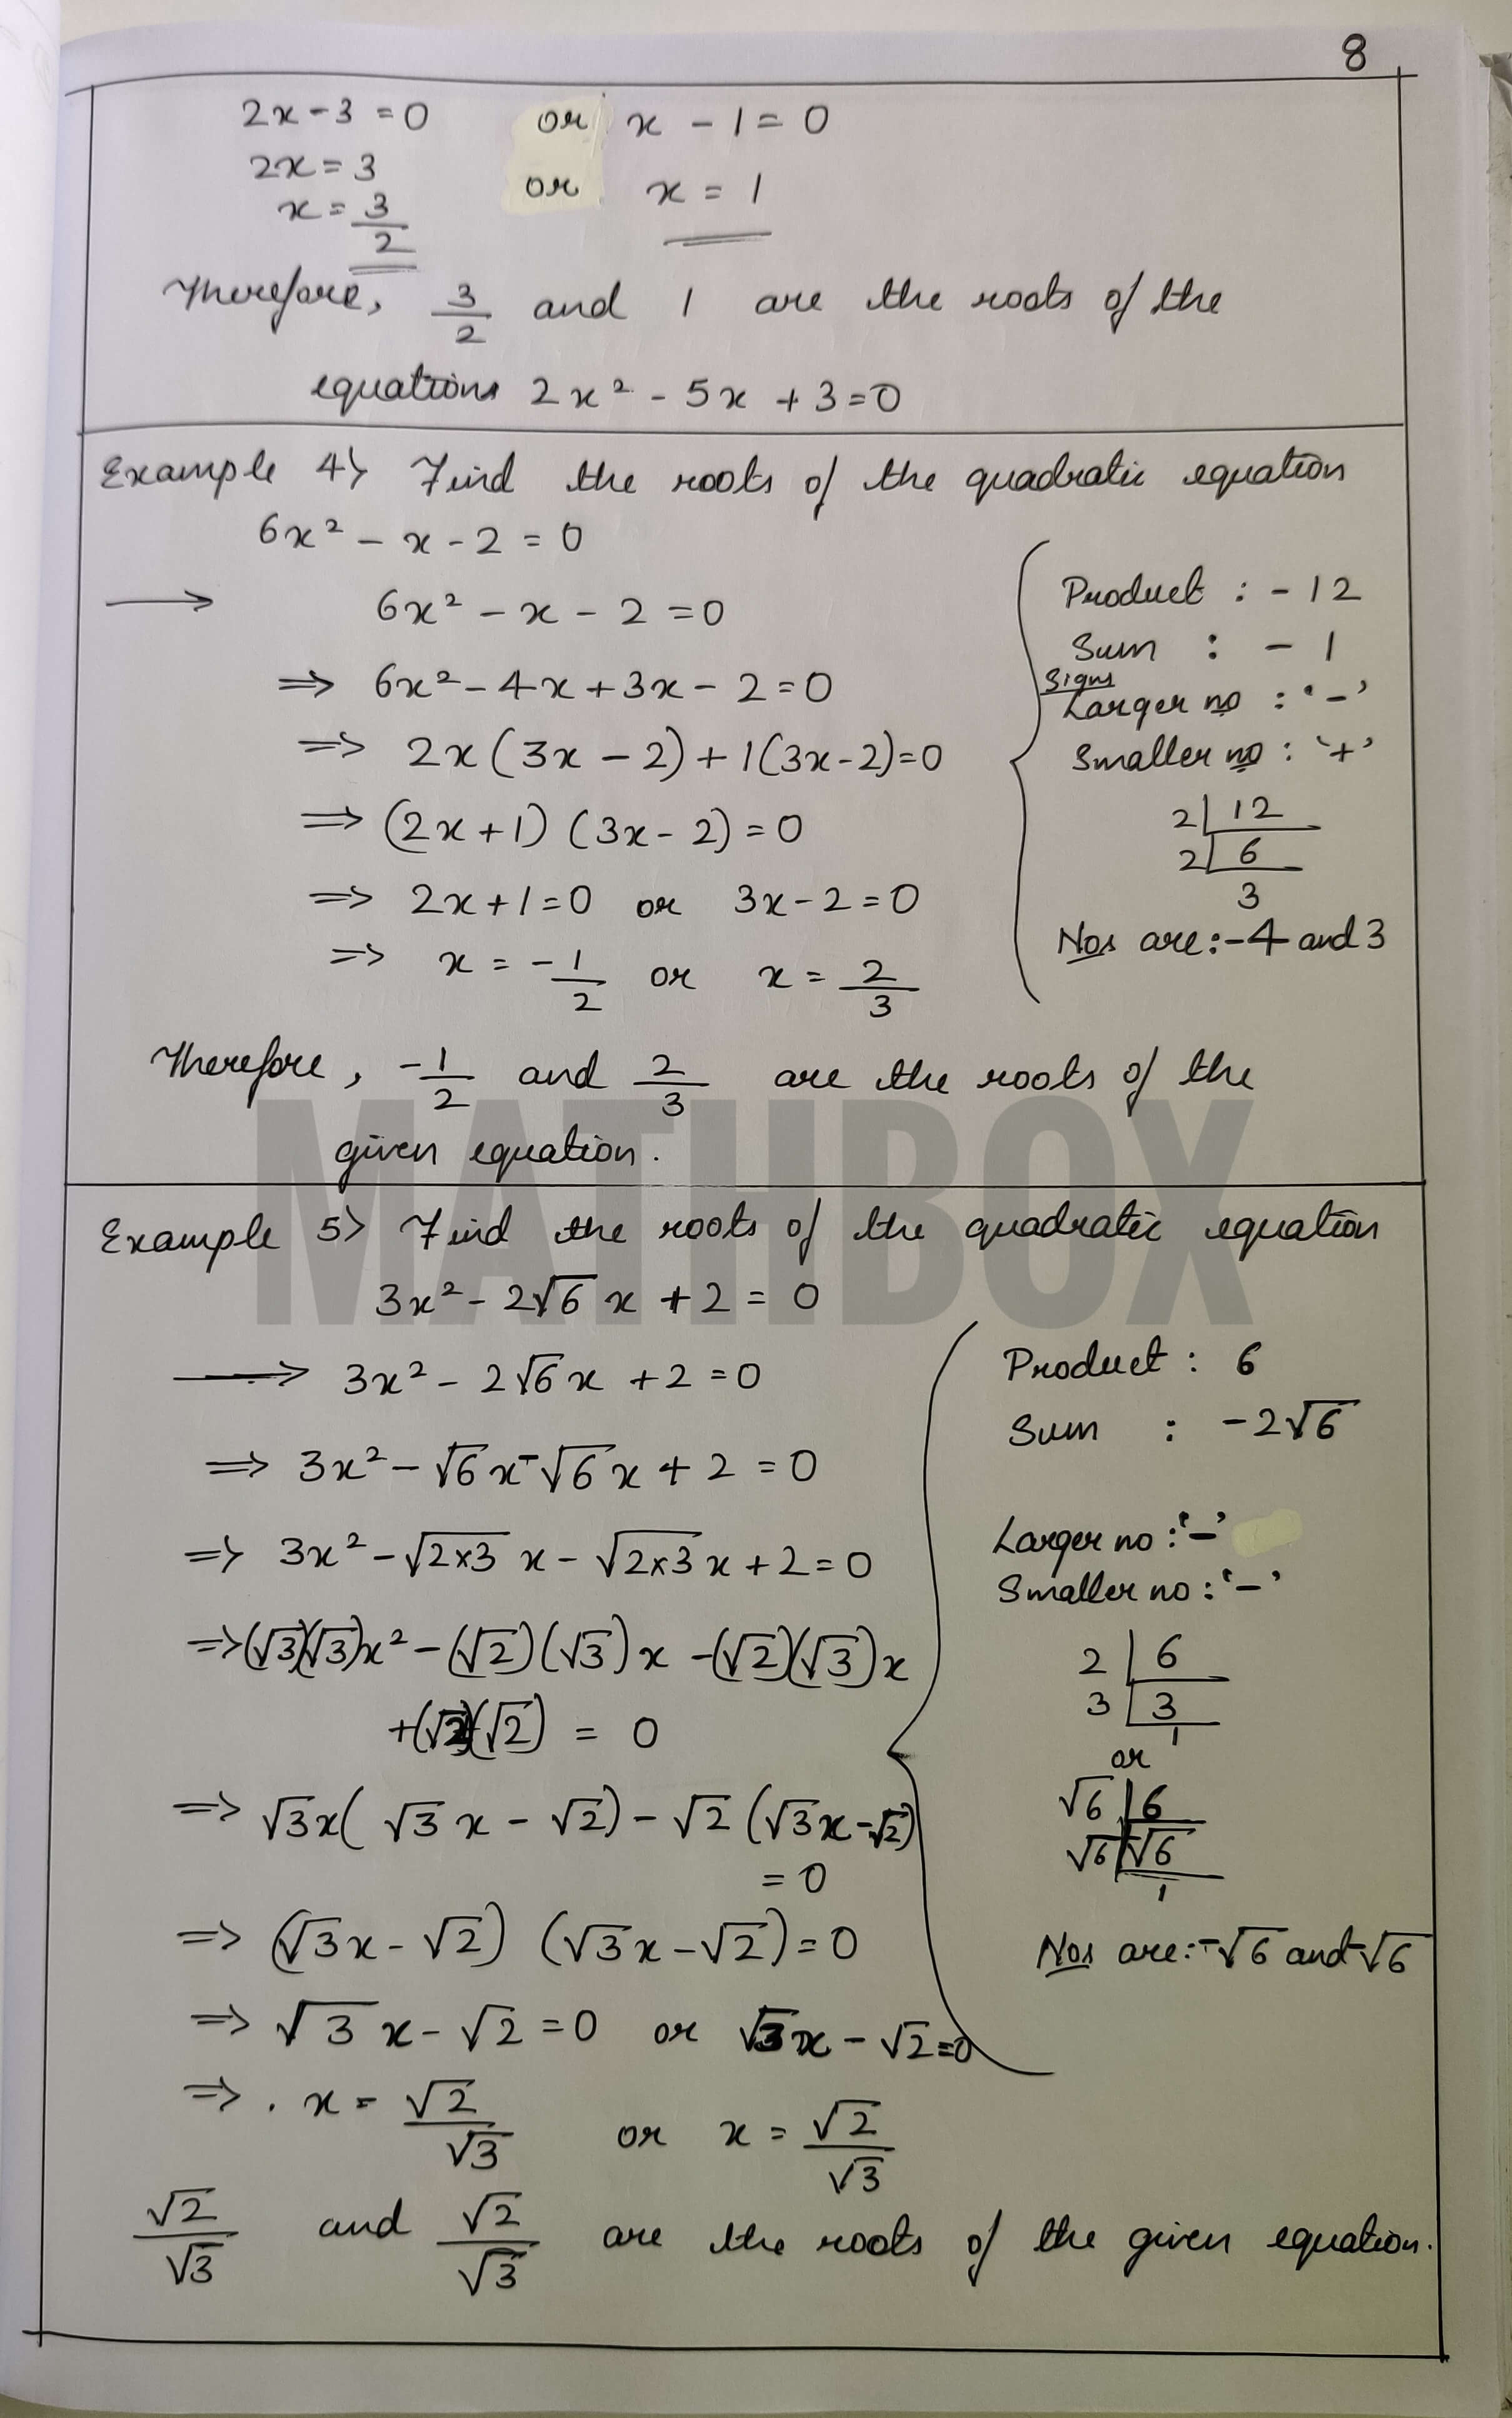 8
2x - 3 = 0 or x - 1 = 0
2x = 3 or x = 1
x = 3/2
Therefore, 3/2 and 1 are the roots of the
equations 2x² - 5x + 3 = 0
Example 4> Find the roots of the quadratic equation
6x² - x - 2 = 0
→ 6x² - x - 2 = 0
⇒ 6x² - 4x + 3x - 2 = 0
⇒ 2x(3x - 2) + 1(3x - 2) = 0
⇒ (2x + 1) (3x - 2) = 0
⇒ 2x + 1 = 0 or 3x - 2 = 0
⇒ x = -1/2 or x = 2/3
Product : - 12
Sum : - 1
Signs
Larger no : '-'
Smaller no : '+'
2 | 12
2 | 6
3
Nos are : -4 and 3
Therefore, -1/2 and 2/3 are the roots of the
given equation.
MATHBOX
Example 5> Find the roots of the quadratic equation
3x² - 2√6 x + 2 = 0
→ 3x² - 2√6 x + 2 = 0
⇒ 3x² - √6 x - √6 x + 2 = 0
⇒ 3x² - √2×3 x - √2×3 x + 2 = 0
⇒ (√3)(√3)x² - (√2)(√3)x - (√2)(√3)x
+ (√2)(√2) = 0
⇒ √3x(√3 x - √2) - √2 (√3x - √2)
= 0
⇒ (√3x - √2) (√3x - √2) = 0
⇒ √3 x - √2 = 0 or √3x - √2 = 0
⇒ . x = √2/√3 or x = √2/√3
Product : 6
Sum : -2√6
Larger no : '-'
Smaller no : '-'
2 | 6
3 | 3
1
or
√6 | 6
√6 | √6
1
Nos are : -√6 and -√6
√2/√3 and √2/√3 are the roots of the given equation.